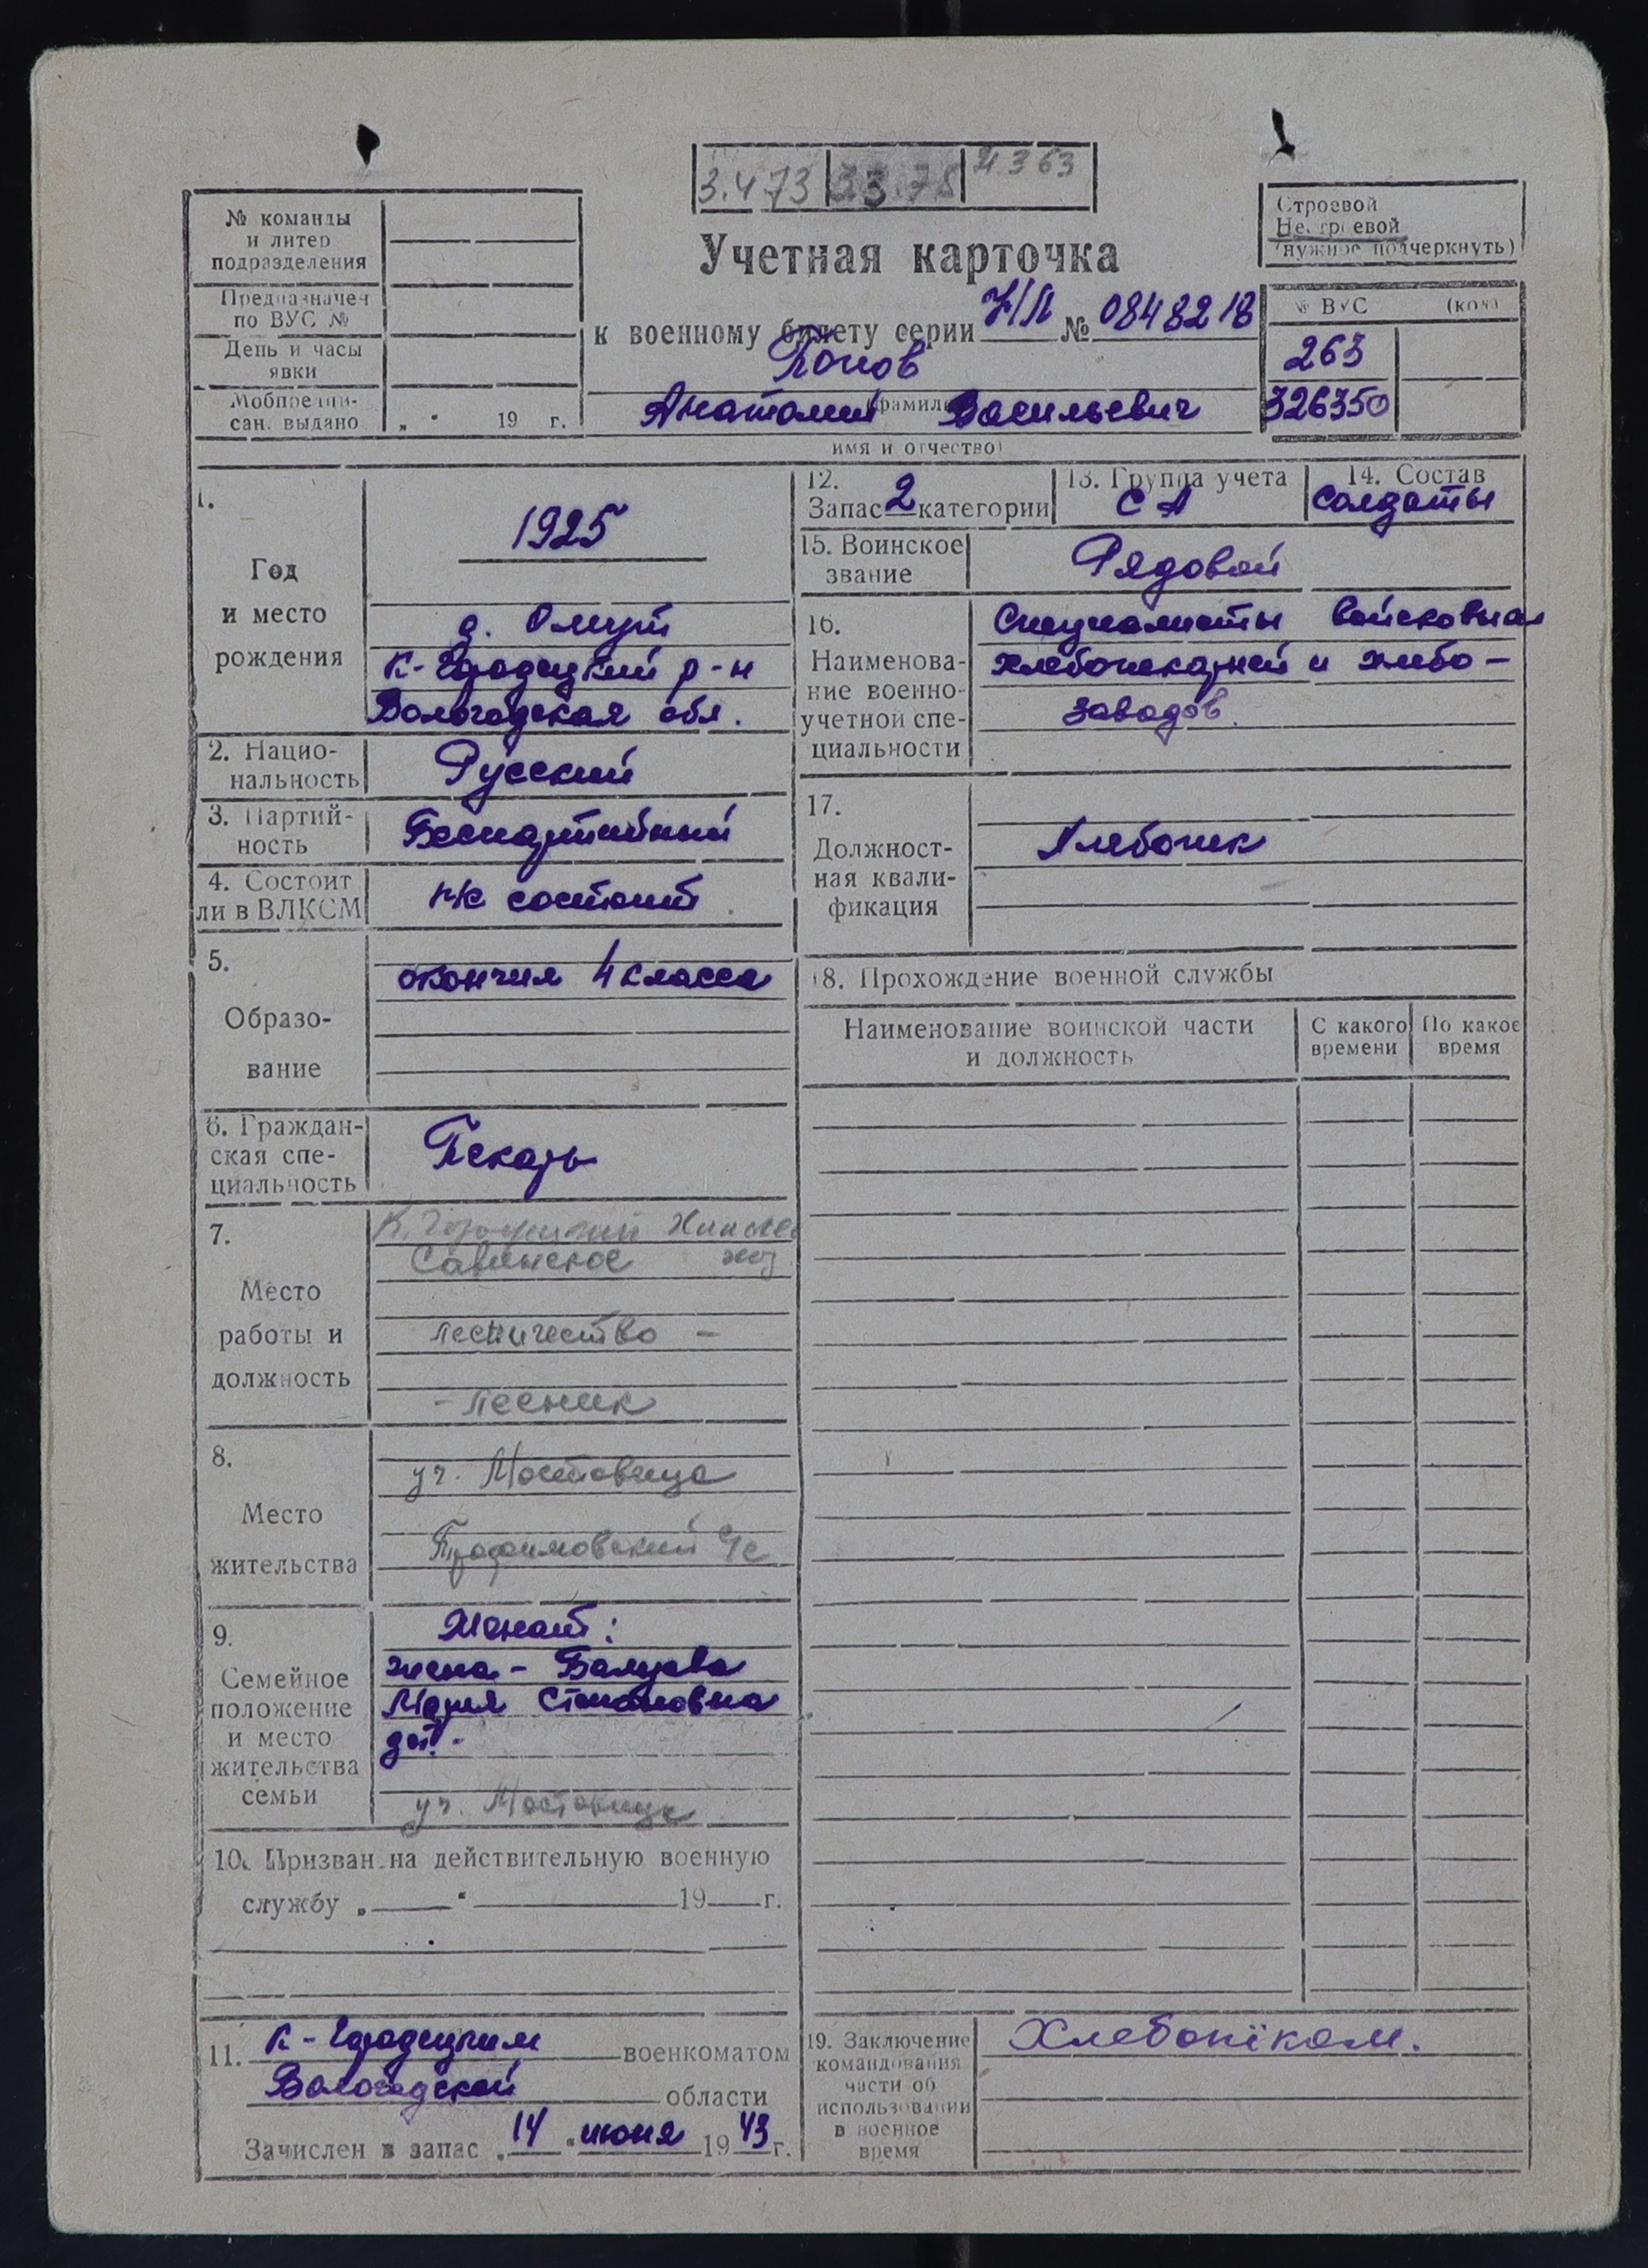 3.4 73 33.78 21.3 63
№ команды
и литер
подразделения
Предназначен
по ВУС №
День и часы
явки
Мобпредпи-
сан. выдано „ " 19 г.
Учетная карточка
к военному билету серии Н/Л № 0848218
Попов
(фамилия)
Анатолий Васильевич
имя и отчество)
Строевой
Нестроевой
(нужное подчеркнуть)
№ ВУС (код)
263
326350
1.
Год
и место
рождения
1925
д. Омут
К-Городецкий р-н
Вологодская обл.
2. Нацио-
нальность
Русский
3. Партий-
ность
Беспартийный
4. Состоит
ли в ВЛКСМ
не состоит
5.
Образо-
вание
окончил 4 класса
6. Граждан-
ская спе-
циальность
Пекарь
7.
Место
работы и
должность
К. Городецкий
Савинское
лесничество –
– лесник
8.
Место
жительства
уч. Мостовица
Трофимовский с/с
9.
Семейное
положение
и место
жительства
семьи
Женат:
жена – Балуева
Мария Степановна
дет. -
уч. Мостовица
10. Призван на действительную военную
службу „ " 19 г.
11. К-Городецким военкоматом
Вологодской области
Зачислен в запас „14 " июня 1943 г.
12.
Запас 2 категории
13. Группа учета
СА
14. Состав
Солдаты
15. Воинское
звание
Рядовой
16.
Наименова-
ние военно-
учетной спе-
циальности
Специалисты войсковых
хлебопекарней и хлебо-
заводов.
17.
Должност-
ная квали-
фикация
Хлебопек
18. Прохождение военной службы
Наименование воинской части
и должность
С какого
времени
По какое
время
19. Заключение
командования
части об
использовании
в военное
время
Хлебопёком.